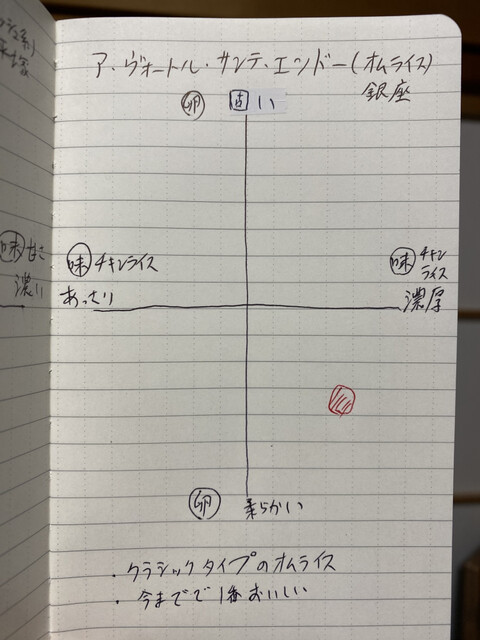 ア・ヴォートル・サンテ・エンドー(オムライス)
銀座
卵 固い
味 チキンライス
あっさり
味 チキン
ライス
濃厚
味 甘さ
濃い
卵 柔らかい
・クラシックタイプのオムライス
・今までで1番おいしい